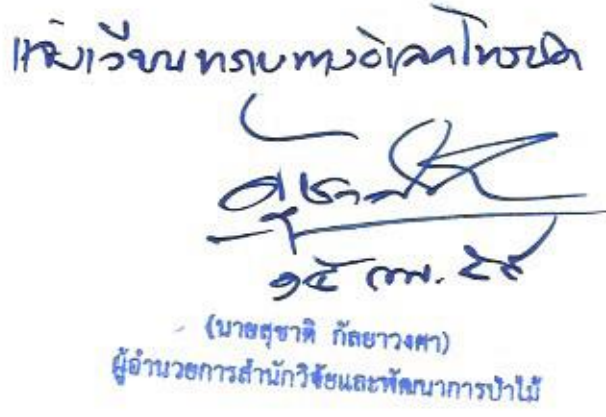 แจ้งเวียนทราบทางอิเลคโทรนิค
๑๕ กพ. ๕๕
(นายสุชาติ กัลยาวงศา)
ผู้อำนวยการสำนักวิจัยและพัฒนาการป่าไม้